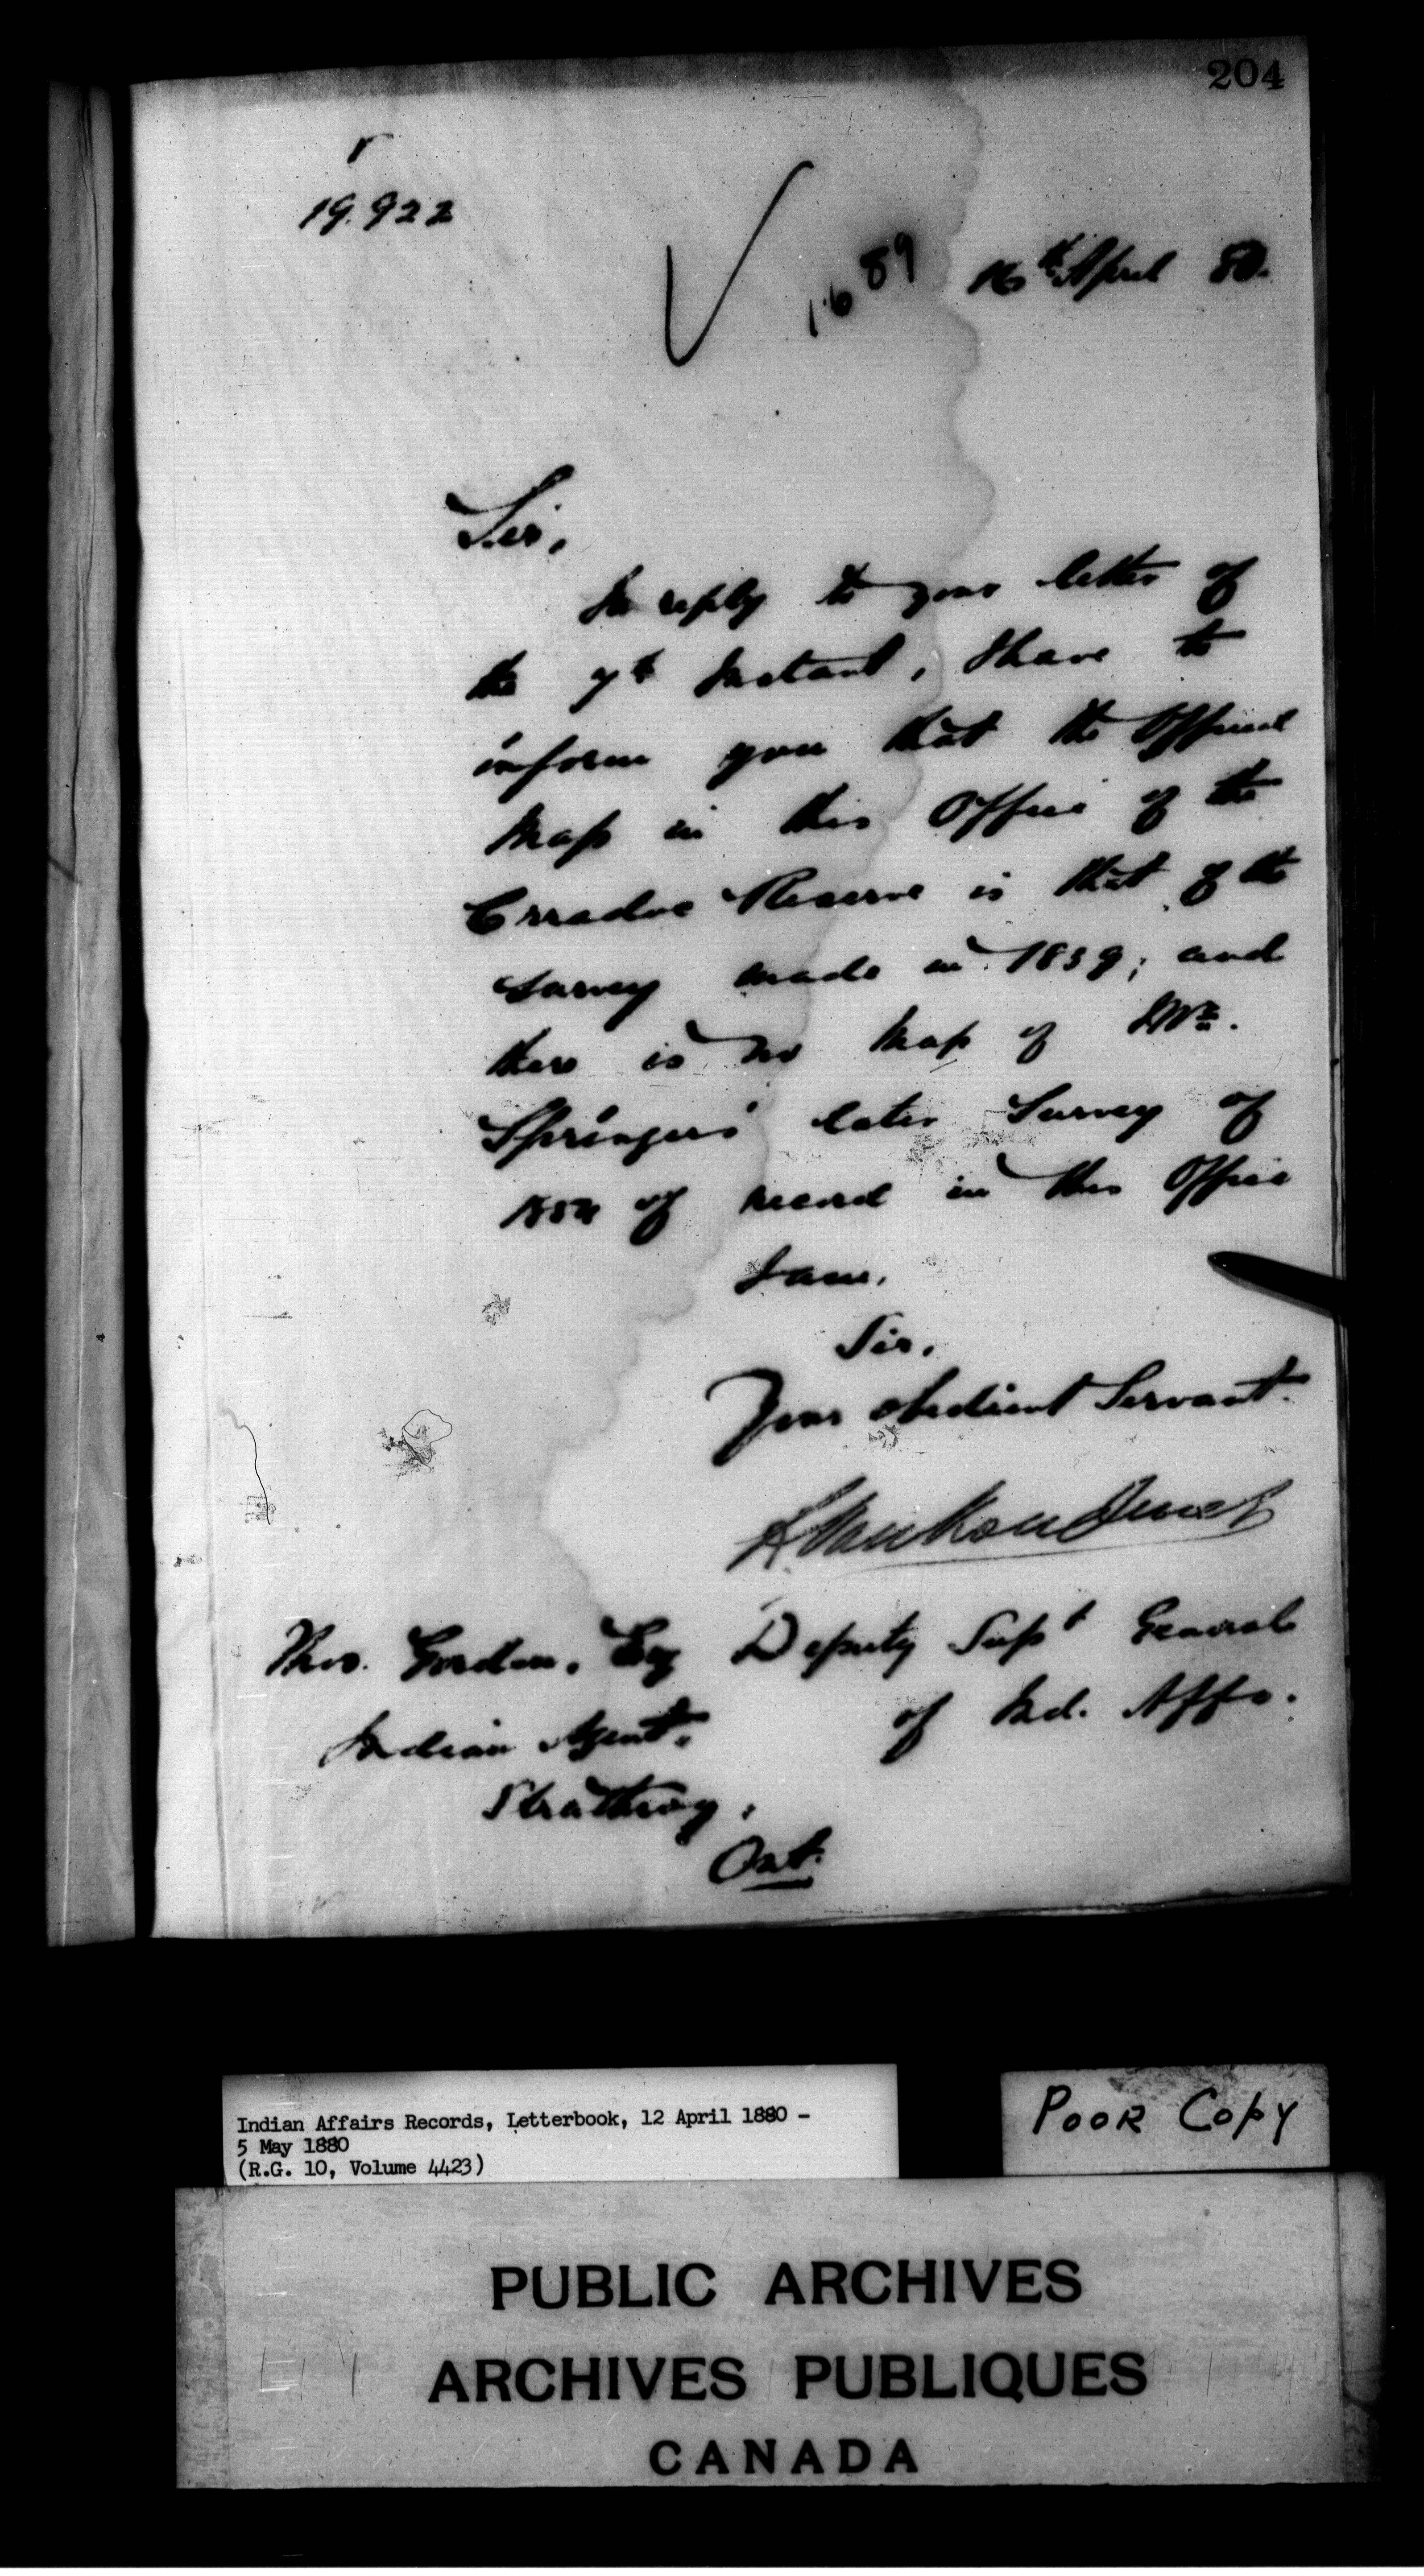 204
19.922
1689 16th April 80.
Sir,
In reply to your letter of
the 7th Instant, I have to
inform you that the Official
Map in this Office of the
Carradoc Reserve is that of the
Survey made in 1839; and
there is no Map of Mr.
Springers' later Survey of
of record in this Office
I am,
Sir,
Your obedient Servant.
L VanKoughnet
Thos. Gordon, Esq Deputy Supt General
Indian Agent, of Ind. Affs.
Strathroy,
Ont.
Indian Affairs Records, Letterbook, 12 April 1880 -
5 May 1880
(R.G. 10, Volume 4423)
POOR COPY
PUBLIC ARCHIVES
ARCHIVES PUBLIQUES
CANADA